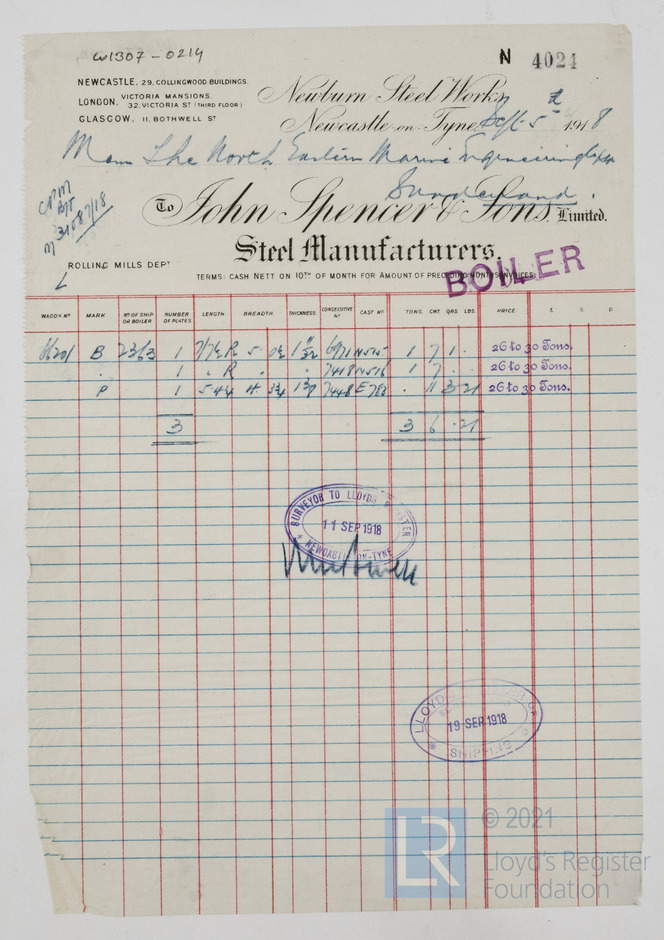 W1307-0214
N 4024
NEWCASTLE, 29, COLLINGWOOD BUILDINGS.
LONDON, VICTORIA MANSIONS, 32, VICTORIA ST (THIRD FLOOR)
GLASGOW, 11, BOTHWELL ST
Newburn Steel Works,
Newcastle-on-Tyne, Sept 5 1918
The North Eastern Marine Engineering
Sunderland.
To John Spencer & Sons, Limited.
Steel Manufacturers,
ROLLING MILLS DEPT
TERMS: CASH NETT ON 10TH OF MONTH FOR AMOUNT OF PRECEDING MONTHS INVOICES
BOILER
WAGON No MARK No OF SHIP OR BOILER NUMBER OF PLATES LENGTH BREADTH THICKNESS CONSECUTIVE No CAST No TONS. CWT QRS. LBS. PRICE £. S. D.
B 2363 1 1 7 1 26 to 30 Tons.
1 R 1 7 26 to 30 Tons.
P 1 11 3 21 26 to 30 Tons.
3 3 6 . 21
SURVEYOR TO LLOYD'S REGISTER
11 SEP 1918
NEWCASTLE-ON-TYNE
LLOYD'S REGISTER OF
19 SEP 1918
SHIPPING
LR © 2021
Lloyd's Register
Foundation